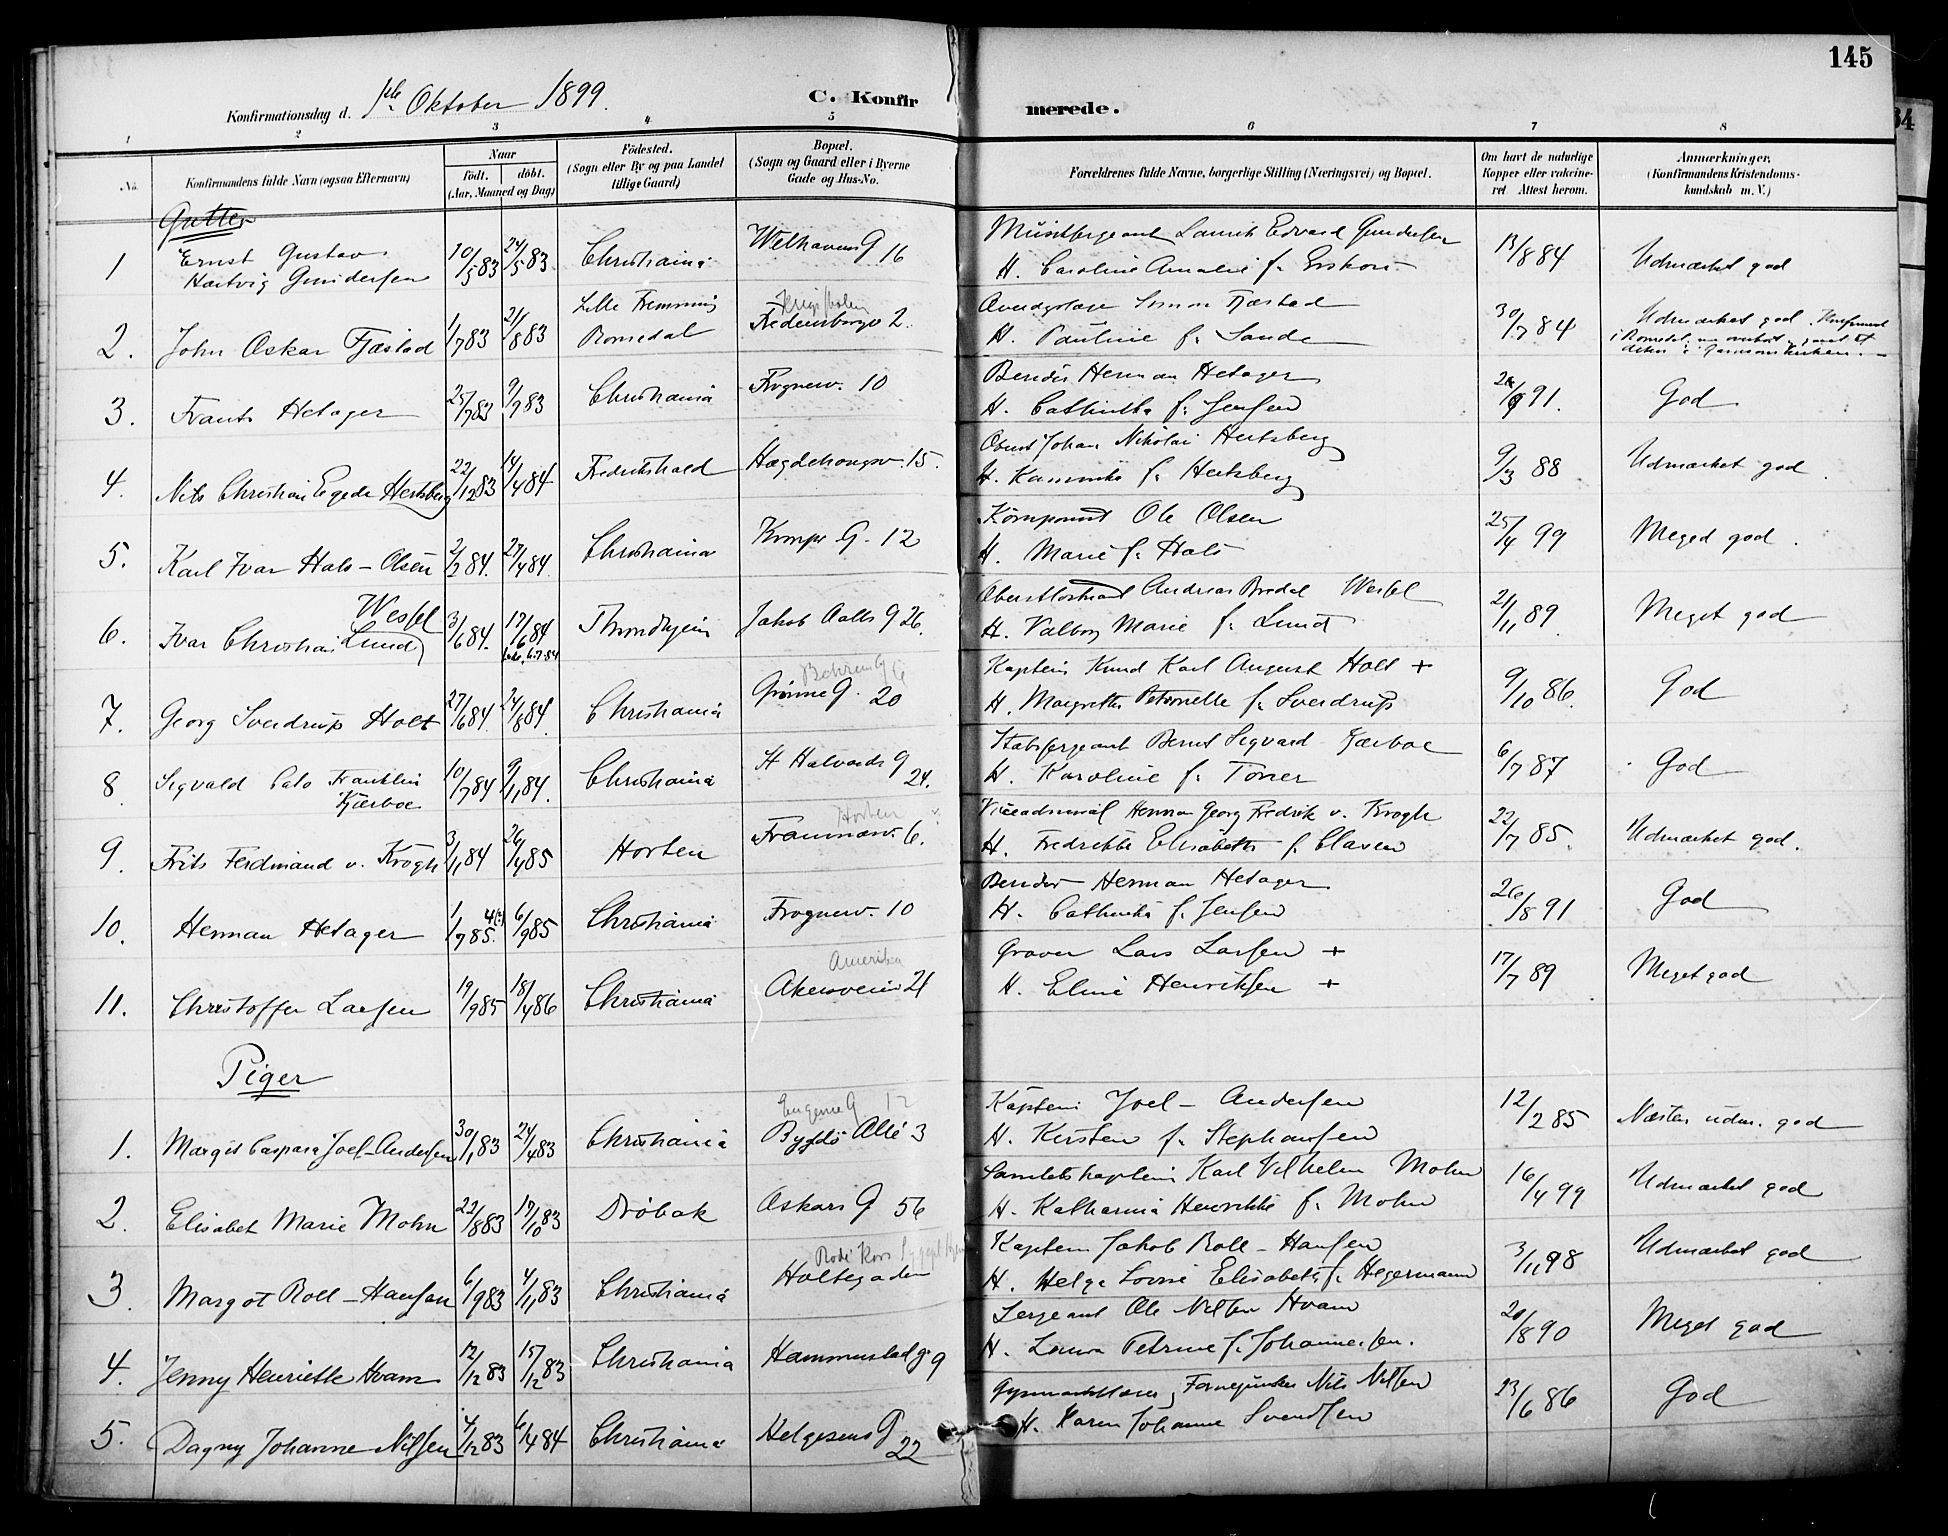 145
Konfirmationsdag d. 1ste Oktober 1899. C. Konfirmerede.
1 2 3 4 5 6 7 8
No. Konfirmandens fulde Navn (ogsaa Efternavn) Naar født. døbt. (Aar, Maaned og Dag) Födested. (Sogn eller By og paa Landet tillige Gaard) Bopæl. (Sogn og Gaard eller i Byerne Gade og Hus-No. Forældrenes fulde Navne, borgerlige Stilling (Næringsvei) og Bopæl. Om havt de naturlige Kopper eller vakcineret Attest herom. Anmærkninger, (Konfirmandens Kristendomskundskab m. V.)
Gutter
1 Ernst Gustav Hartvig Gundersen 10/5 83 24/5 83 Christiania Welhavens G 16 Edvard Gundersen
H. Caroline Amalie f. 13/8 84 Udmærket god
2. John Oskar Fjæstad 1/7 83 21/8 83 Romedal Fredensborgv 2. Simon Fjæstad
H. Pauline f. Sande 30/7 84 Udmærket god. i Romedal
3. Frants Hetager 25/7 83 9/7 83 Christiania Frognerv. 10 Herman Hetager
H. Cathinka f. Jensen 91. God
4. Nils Christian Egede Hertzberg 22/12 83 14/4 84 Fredrikshald Hægdehougsv. 15. Oberst Johan Nikolai Hertzberg
H. f. Hertzberg 9/3 88 Udmærket god
5. Karl Ivar Hals-Olsen 2/2 84. 27/4 84. Christiania Krags G. 12 Ole Olsen
H. Marie f. Hals 25/4 99 Meged god.
6. Ivar Christian Lund Wesfel 3/6 84. 17/6 84 Throndhjem Jakob Aalls G 26. Oberstløitnant Andreas Bredal Wesfel
H. Valborg Marie f. Lund 21/11 89. Meget god
7. Georg Sverdrup Holt 27/6 84. 24/8 84. Christiania Grønne G. 20 Kaptein Knud Karl August Holt +
H. Margrethe Petronelle f. Sverdrup 9/10 86. God
8 Sigvald Cato Franklin Kjerboe 10/7 84 9/11 84. Christiania St Halvards G 24. Stabssergeant Bernt Sigvard Kjerboe
H. Karoline f. 6/7 87 God
9. Frits Ferdinand v. Krogh 3/11 84 26/4 85 Horten Horten Framnæsv. 6. Viceadmiral Herman Georg Fredrik v. Krogh
H. Fredrikke Elisabeth f. Clasen 22/7 85. Udmærket god.
10. Herman Hetager 1/7 85. 4(?) 6/9 85 Christiania Frognerv. 10 Herman Hetager
H. Cathinka f. Jensen 26/8 91 God
11. Christoffer Larsen 19/9 85 18/4 86 Christiania Amerika Akersveien 21 Graver Lars Larsen +
H. Eline Henriksen + 17/7 89 Meget god
Piger
1. Margit Caspara Joel-Andersen 30/1 83 24/4 83 Christiania Eugenie G 12 Bygdø Allé 3 Kaptein Joel-Andersen
H. Kirsten f. Stephansen 12/2 85 Næsten udm. god
2. Elisabet Marie Mohn 22/8 83 17/10 83 Drøbak Oskars G 56 Karl Vilhelm Mohn
H. Katharina Henrikke f. Mohn 16/4 99 Udmærket god
3. Margot Roll-Hansen 6/9 83 4/11 83 Christiania Røde Kors Holtegaden Kaptein Jakob Roll-Hansen
H. Helga Lovise Elisabeth f. Hegermann 3/11 98 Udmærket god
4. Jenny Henriette Hvam 12/12 83 15/12 83 Christiania Hammerstad g 9 Sergeant Ole Nilsen Hvam
H. Laura Petrine f. Johannessen. 20/8 90 Meget god
5. Dagny Johanne Nilsen 4/12 83 6/4 84 Christiania Helgesens G 22 Nils Nilsen
H. Karen Johanne Svendsen 23/6 86 God